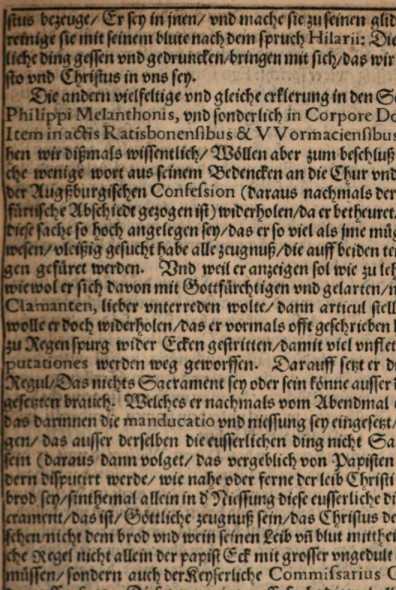 stus bezeuge/ Er sey in jnen/ vnd mache sie zu seinen glid
reinige sie mit seinem blute nach dem spruch Hilarii: Die
liche ding gessen vnd gedruncken/bringen mit sich/das wir
sto vnd Christus in vns sey.
Die andern vielfeltige vnd gleiche erklerung in den S
Philippi Melanthonis, vnd sonderlich in Corpore Do
Item in actis Ratisbonensibus & VVormaciensibus
hen wir dißmals wissentlich/ Wöllen aber zum beschluß
che wenige wort aus seinem Bedencken an die Chur vnd
der Augspurgischen Confession (daraus nachmals der
fürstische Abschiedt gezogen ist) widerholen/da er betheuret
diese sache so hoch angelegen sey/das er so viel als jme müg
wesen/ vleißig gesucht habe alle zeugnuß/die auff beiden te
gen gefüret werden. Vnd weil er anzeigen sol wie zu leh
wiewol er sich davon mit Gottfürchtigen vnd gelarten/n
Clamanten, lieber vnterreden wolte/ dann articul stell
wolle er doch widerholen/das er vormals offt geschrieben
zu Regenspurg wider Ecken gestritten/damit viel vnflet
putationes werden weg geworffen. Darauff setzt er d
Regul/Das nichts Sacrament sey oder sein könne ausser
gesetzten brauch. Welches er nachmals vom Abendmal
das darinnen die manducatio vnd niessung sey eingesetzt/
gen/ das ausser derselben die eusserlichen ding nicht Sa
sein (daraus dann volget/ das vergeblich von Papisten
dern disputirt werde/ wie nahe oder ferne der leib Christi
brod sey/sinthemal allein in d' Niessung diese eusserliche di
crament/das ist/ Göttliche zeugnuß sein/das Christus de
schen/nicht dem brod vnd wein seinen Leib vñ blut mitthei
che Regel nicht allein der papist Eck mit grosser vngedult
müssen/ sondern auch der Keyserliche Commissarius G